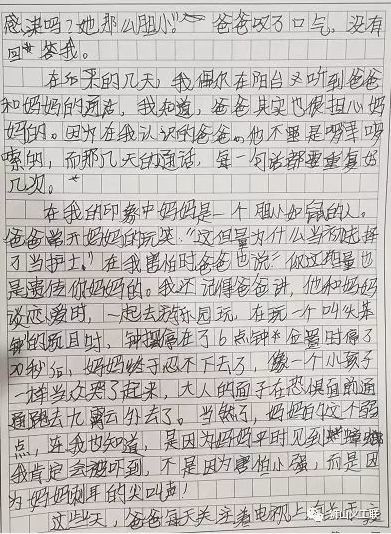 感染吗？她那么胆小。”爸爸叹了口气，没有
回答我。
在后来的几天，我偶尔在阳台又听到爸爸
和妈妈的通话，我知道，爸爸其实也很担心妈
妈的。因为在我认识的爸爸。他不是啰里啰
嗦的，而那几天的通话，每一句话都要重复好
几次。
在我的印象中妈妈是一个胆小如鼠的人。
爸爸常开妈妈的玩笑：“这胆量为什么当初选择
了当护士。”在我害怕时爸爸也说：“你这胆量也
是遗传你妈妈的。我还记得爸爸讲，他和妈妈
谈恋爱时，一起去游乐园玩，在玩一个叫大笨
钟的项目时，钟摆停在了6点钟位置时停了
20秒后，妈妈终于忍不下去了，像一个小孩子
一样当众哭了起来，大人的面子在恐惧面前通
通跑去九霄云外去了。当然了，妈妈的这个弱
点，连我也知道，是因为妈妈平时见到蟑螂
我肯定会被吓到，不是因为害怕小强，而是因
为妈妈刺耳的尖叫声！
这些天，爸爸每天关注着电视上